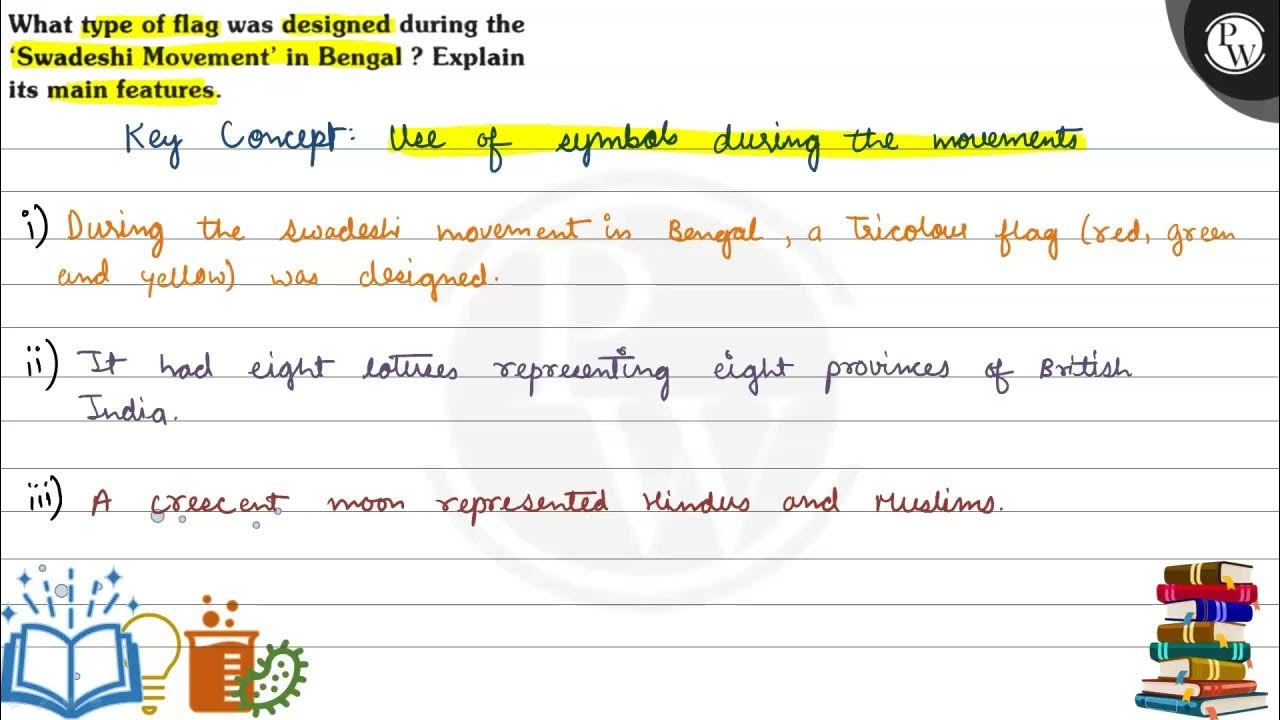 What type of flag was designed during the
‘Swadeshi Movement’ in Bengal ? Explain
its main features.
PW
Key Concept: Use of symbols during the movements
i) During the swadeshi movement in Bengal, a Tricolour flag (red, green
and yellow) was designed.
ii) It had eight lotuses representing eight provinces of British
India.
iii) A crescent moon represented Hindus and Muslims.
PW